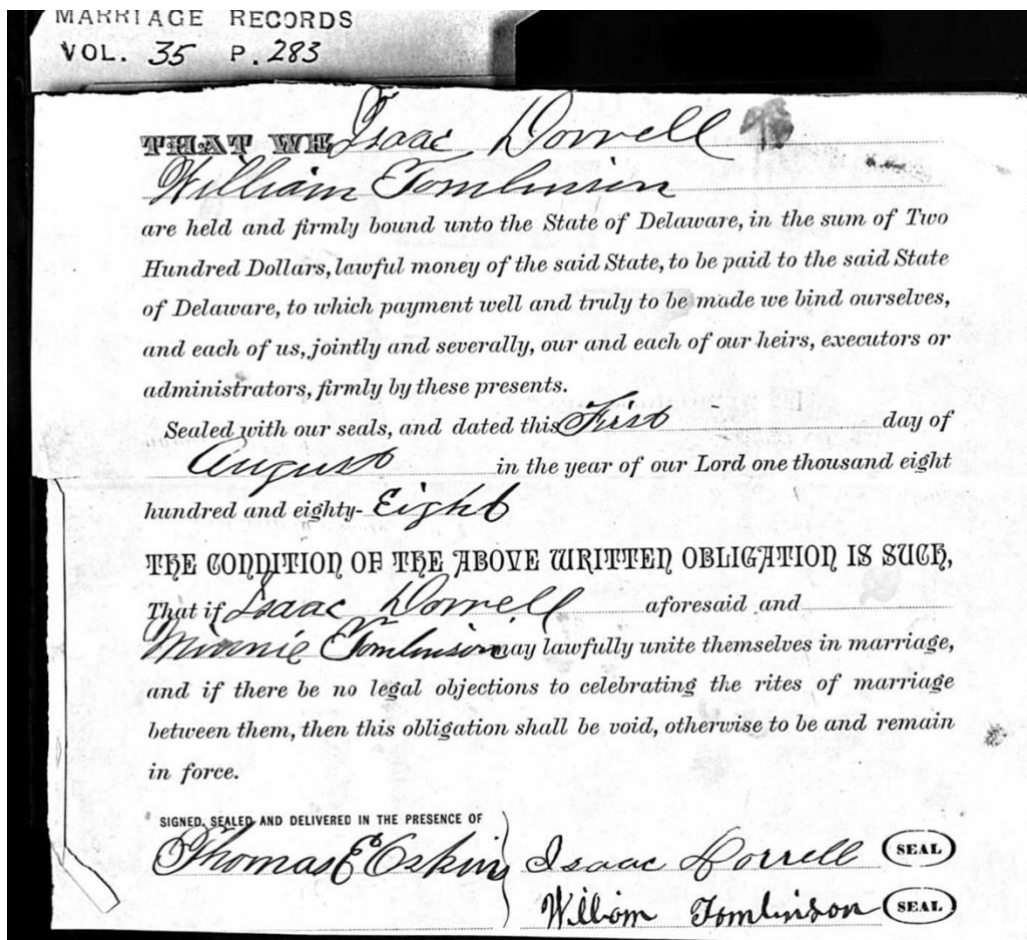 MARRIAGE RECORDS
VOL. 35 P. 283
THAT WE Isaac Dorrell
William Tomlinson
are held and firmly bound unto the State of Delaware, in the sum of Two
Hundred Dollars, lawful money of the said State, to be paid to the said State
of Delaware, to which payment well and truly to be made we bind ourselves,
and each of us, jointly and severally, our and each of our heirs, executors or
administrators, firmly by these presents.
Sealed with our seals, and dated this First day of
August in the year of our Lord one thousand eight
hundred and eighty- Eight
THE CONDITION OF THE ABOVE WRITTEN OBLIGATION IS SUCH,
That if Isaac Dorrell aforesaid and
Minnie Tomlinson may lawfully unite themselves in marriage,
and if there be no legal objections to celebrating the rites of marriage
between them, then this obligation shall be void, otherwise to be and remain
in force.
SIGNED, SEALED AND DELIVERED IN THE PRESENCE OF
Thomas E Eskin Isaac Dorrell SEAL
William Tomlinson SEAL